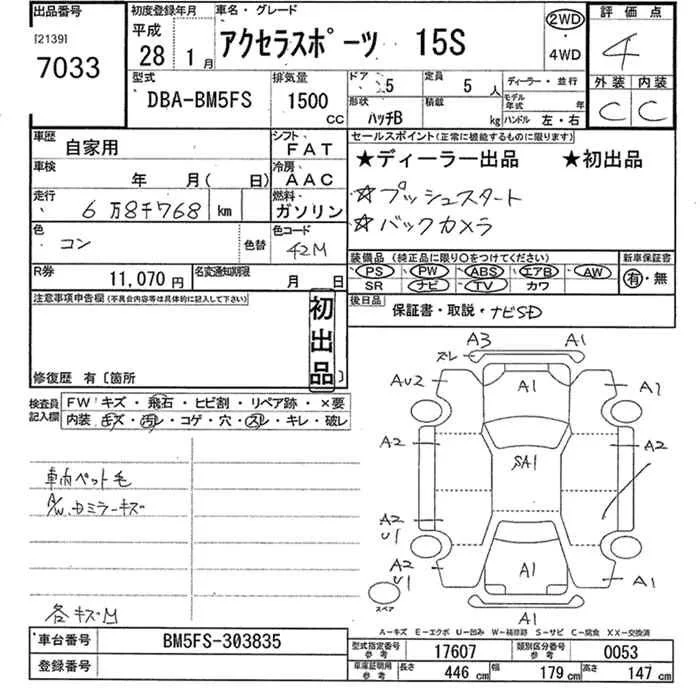 出品番号
[2139]
7033
初度登録年月 車名・グレード
平成 28 1月
アクセラスポーツ 15S
2WD
・
4WD
評価点
4
外装 内装
C C
型式
DBA-BM5FS
排気量
1500 cc
ドア 5 定員 5人
形状 ハッチB 積載 kg
ディーラー・並行
モデル年式 年
ハンドル 左・右
車歴 自家用
シフト FAT
車検 年 月( 日)
冷房 AAC
走行 6万8千768 km
燃料 ガソリン
色 コン 色替
色コード 42M
R券 11,070円 名変通知期限 月 日
セールスポイント(正常に機能するものに限ります)
★ディーラー出品 ★初出品
☆プッシュスタート
☆バックカメラ
装備品(純正品に限り○をつけてください) 新車保証書
PS PW ABS エアB AW 有・無
SR ナビ TV カワ
後日品 保証書・取説・ナビSD
注意事項申告欄(不具合内容等は具体的に記入して下さい)
初出品
修復歴 有〔箇所 〕
検査員記入欄
FW キズ・飛石・ヒビ割・リペア跡・×要
内装、キズ・汚レ・コゲ・穴・スレ・キレ・破レ
車内ペット毛
A/W、ドミラーキズ
各キズM
A3 A1
ズレ
AU2 A1 A1
A2 A2
SA1
A2
U1
A2
U1
A1 A1
スペア
A1
A-キズ E-エクボ U-凹み W-補修跡 S-サビ C-腐食 XX-交換済
車台番号 BM5FS-303835
登録番号
型式指定番号 参考 17607 類別区分番号 参考 0053
車庫証明用 参考 長さ 446cm 幅 179cm 高さ 147cm